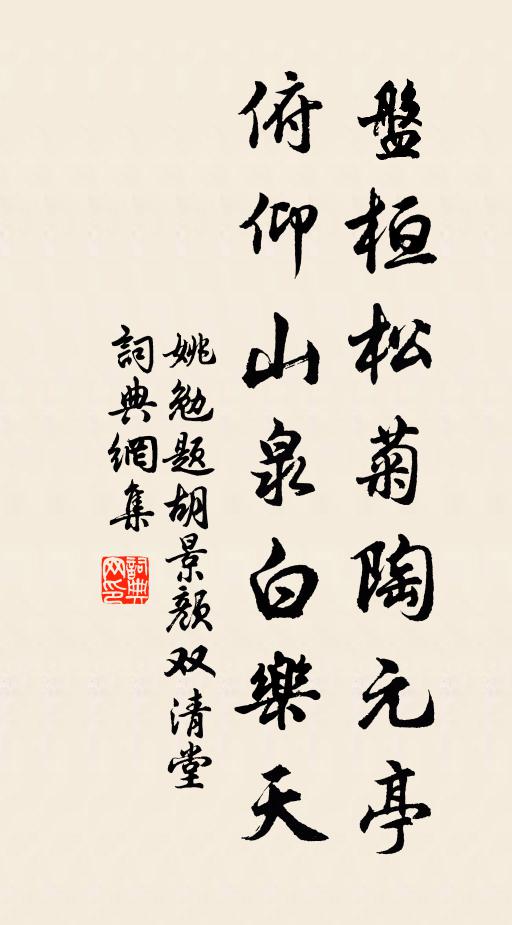 盤桓松菊陶元亭
俯仰山泉白樂天
姚勉题胡景颜双清堂
詞典網集
詞典网印